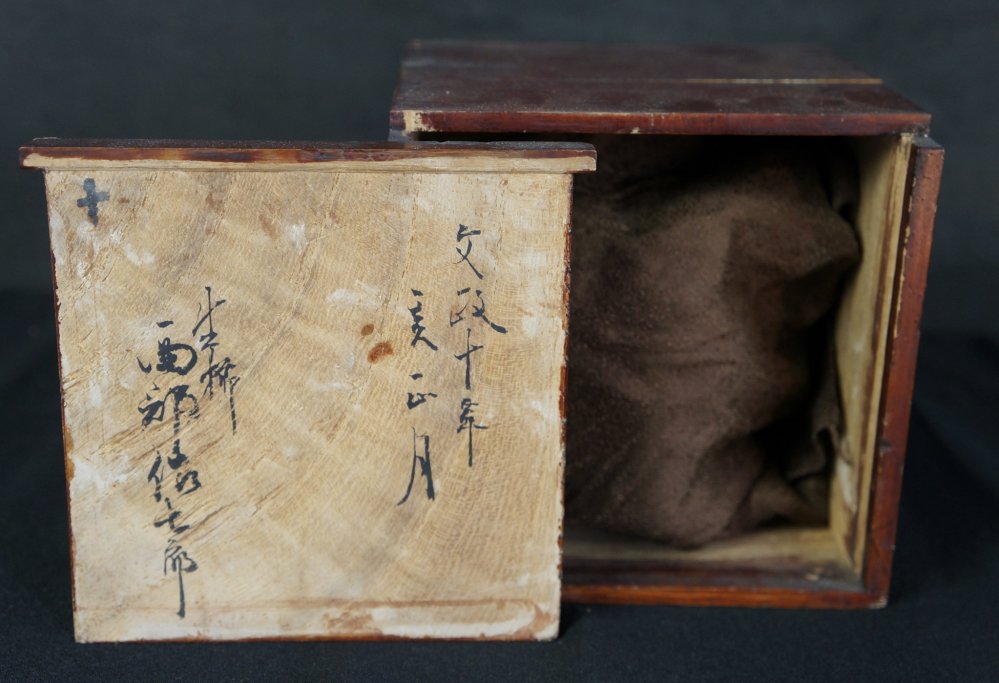 文政十年
亥正月
西部佐七郎